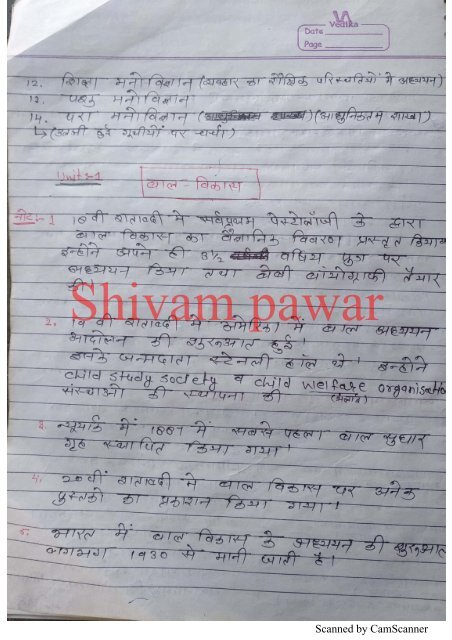 Vedika
Date
Page
12. शिक्षा मनोविज्ञान (व्यवहार का शैक्षिक परिस्थतियों में अध्ययन)
13. पशु मनोविज्ञान
14. परा मनोविज्ञान (आधुनिकतम शाखा)
↳ (उलझी हुई गूत्थीयों पर चर्चा)
Unit:-1
बाल-विकास
नोट:- 1 18वी शताब्दी में सर्वप्रथम पेस्टोलॉजी के द्वारा
बाल विकास का वैज्ञानिक विवरण प्रस्तुत किया
इन्होने अपने ही 3½ वर्षिय पुत्र पर
अध्ययन किया तथा बेबी बॉयोग्राफी तैयार
की
Shivam pawar
2. 19 वी शताब्दी में अमेरिका में बाल अध्ययन
आंदोलन की शुरूआत हुई।
इसके जन्मदाता स्टेनली हॉल थे। इन्होने
child study society व child welfare organisation
संस्थाओ की स्थापना की
3. न्यूयार्क में 1887 में सबसे पहला बाल सुधार
गृह स्थापित किया गया।
4. 20वीं शताब्दी में बाल विकास पर अनेक
पुस्तको का प्रकाशन किया गया।
5. भारत में बाल विकास के अध्ययन की शुरूआत
लगभग 1930 से मानी जाती है।
Scanned by CamScanner